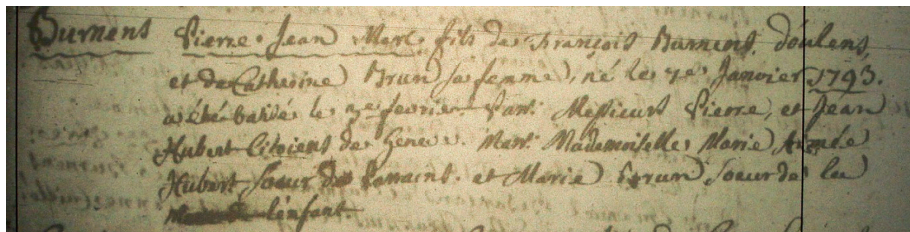 Burnens Pierre Jean Marc fils de François Burnens, d'oulens,
et de Catherine Brun sa femme, né le 7e Janvier 1793.
a été batisé le 3e fevrier. Parr: Messieurs Pierre, et Jean
Hubert Citoiens de Geneve. Marr: Mademoiselle Marie Aimée
Hubert soeur des Parrains. et Marie Brun soeur de la
l'enfant.